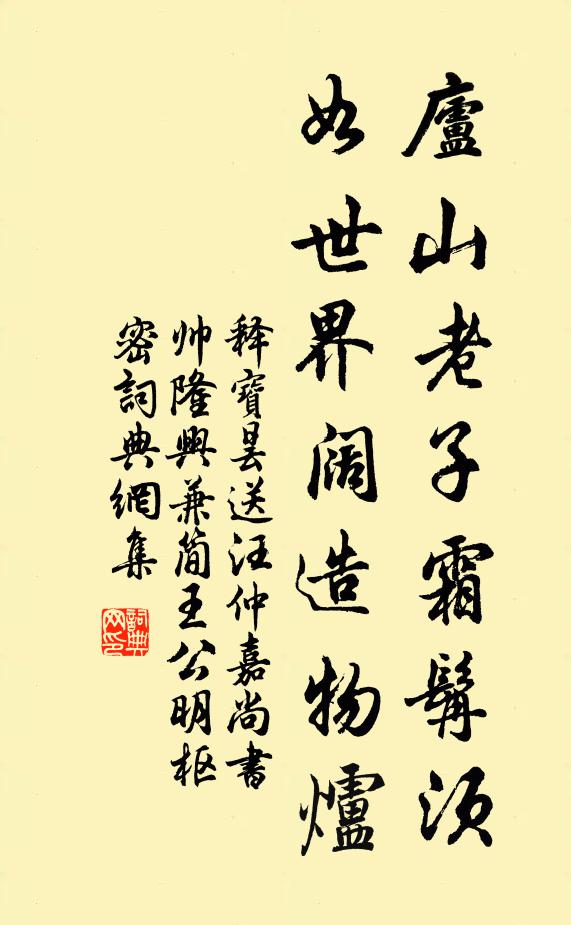 廬山老子霜髯须
如世界阔造物爐
释寶曇送汪仲嘉尚書
帅隆興兼简王公明枢
密詞典網集
詞典
网印